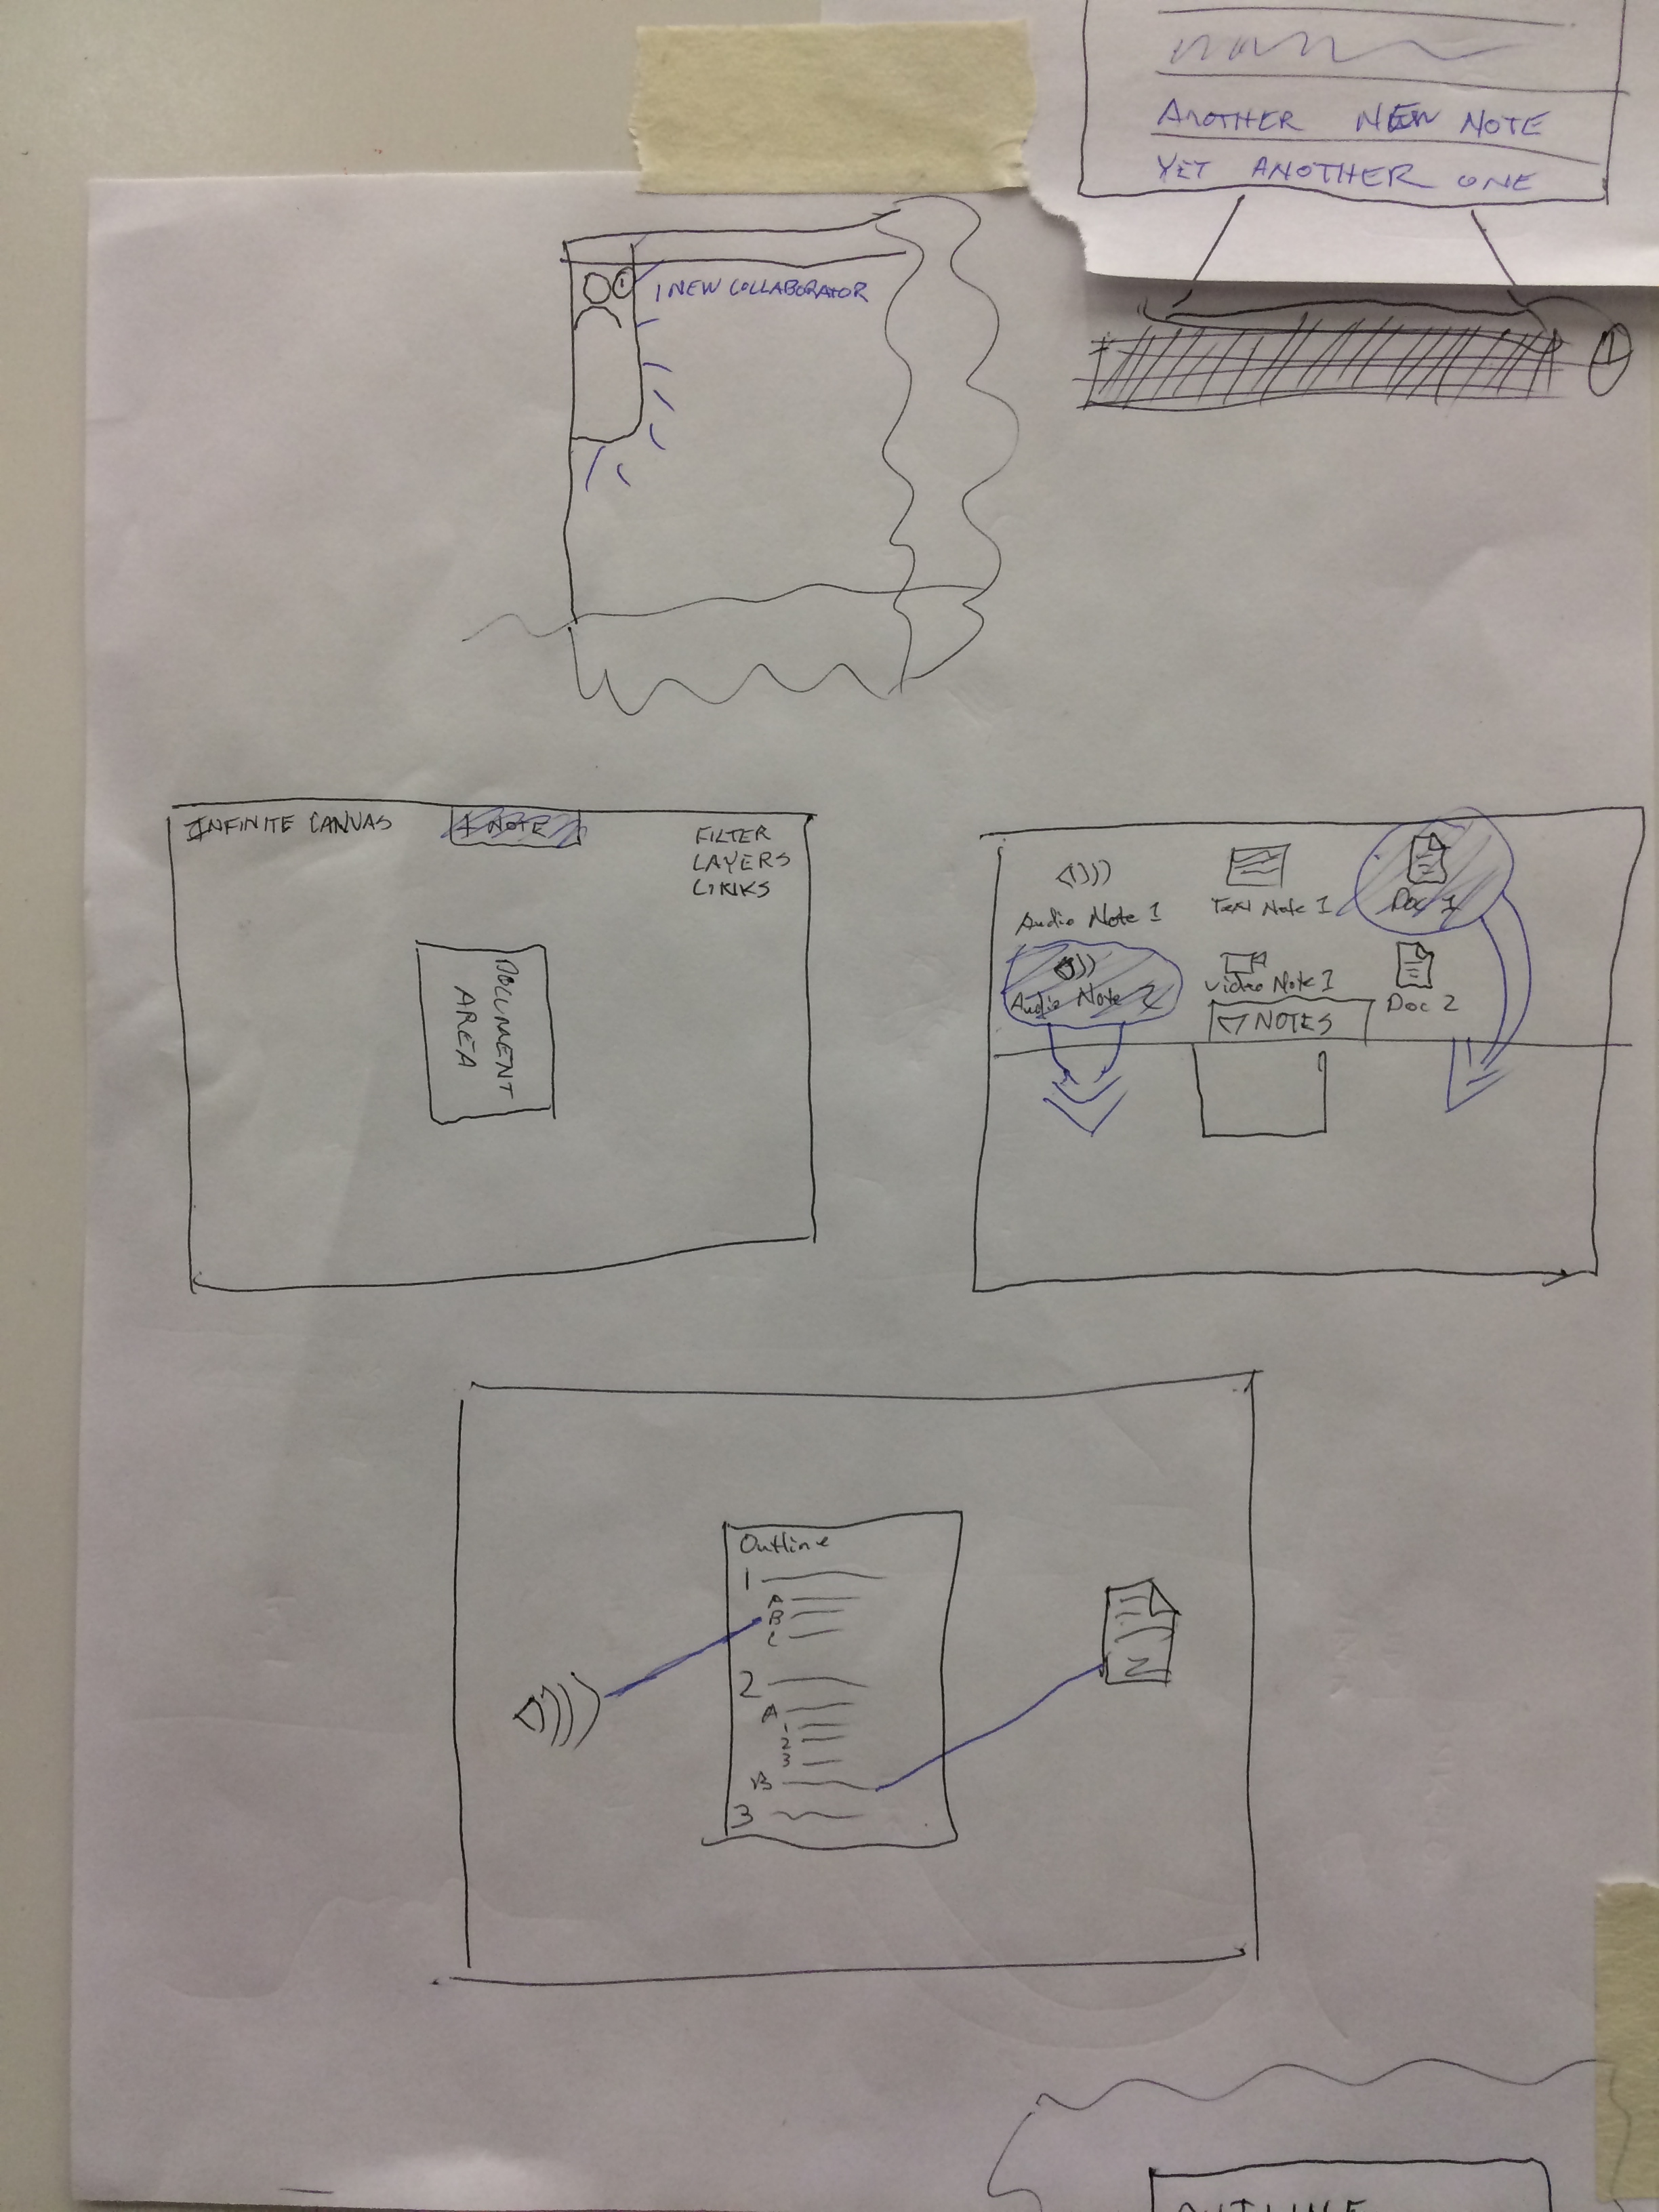 ANOTHER NEW NOTE
YET ANOTHER ONE
1
1 NEW COLLABORATOR
1
INFINITE CANVAS
NOTE
FILTER
LAYERS
LINKS
DOCUMENT
AREA
Audio Note 1
Text Note 1
Doc 1
Audio Note 2
Video Note 1
Doc 2
NOTES
Outline
1
A
B
C
2
A
1
2
3
B
3
OUTLINE